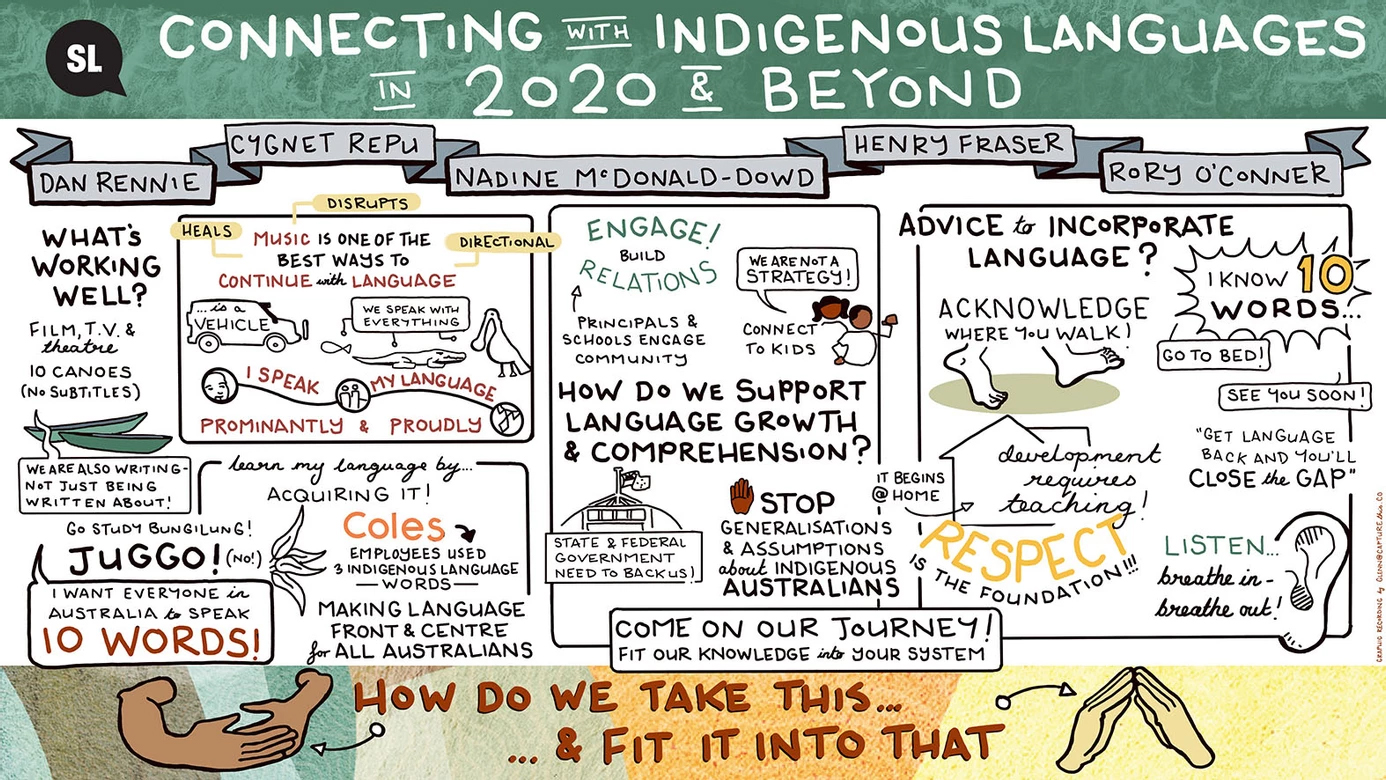 SL
CONNECTING WITH INDIGENOUS LANGUAGES
IN 2020 & BEYOND
DAN RENNIE
CYGNET REPU
NADINE McDONALD-DOWD
HENRY FRASER
RORY O'CONNER
WHAT'S
WORKING
WELL?
FILM, T.V. &
theatre
10 CANOES
(NO SUBTITLES)
WE ARE ALSO WRITING-
NOT JUST BEING
WRITTEN ABOUT!
DISRUPTS
HEALS
DIRECTIONAL
MUSIC IS ONE OF THE
BEST WAYS TO
CONTINUE with LANGUAGE
...is a
VEHICLE
WE SPEAK WITH
EVERYTHING
I SPEAK MY LANGUAGE
PROMINANTLY & PROUDLY
GO STUDY BUNGILUNG!
JUGGO! (NO!)
I WANT EVERYONE in
AUSTRALIA to SPEAK
10 WORDS!
learn my language by...
ACQUIRING IT!
Coles
EMPLOYEES USED
3 INDIGENOUS LANGUAGE
WORDS
MAKING LANGUAGE
FRONT & CENTRE
for ALL AUSTRALIANS
ENGAGE!
BUILD
RELATIONS
PRINCIPALS &
SCHOOLS ENGAGE
COMMUNITY
WE ARE NOT A
STRATEGY!
CONNECT
TO KIDS
HOW DO WE SUPPORT
LANGUAGE GROWTH
& COMPREHENSION?
STATE & FEDERAL
GOVERNMENT
NEED TO BACK US!
STOP
GENERALISATIONS
& ASSUMPTIONS
about INDIGENOUS
AUSTRALIANS
COME ON OUR JOURNEY!
FIT OUR KNOWLEDGE into YOUR SYSTEM
ADVICE to INCORPORATE
LANGUAGE?
ACKNOWLEDGE
WHERE YOU WALK!
IT BEGINS
@ HOME
development
requires
teaching!
RESPECT
IS THE FOUNDATION!!!
I KNOW 10
WORDS...
GO TO BED!
SEE YOU SOON!
"GET LANGUAGE
BACK AND YOU'LL
CLOSE the GAP"
LISTEN...
breathe in-
breathe out!
GRAPHIC RECORDING by GLENN@CAPTUREthis.CO
HOW DO WE TAKE THIS...
... & FIT IT INTO THAT